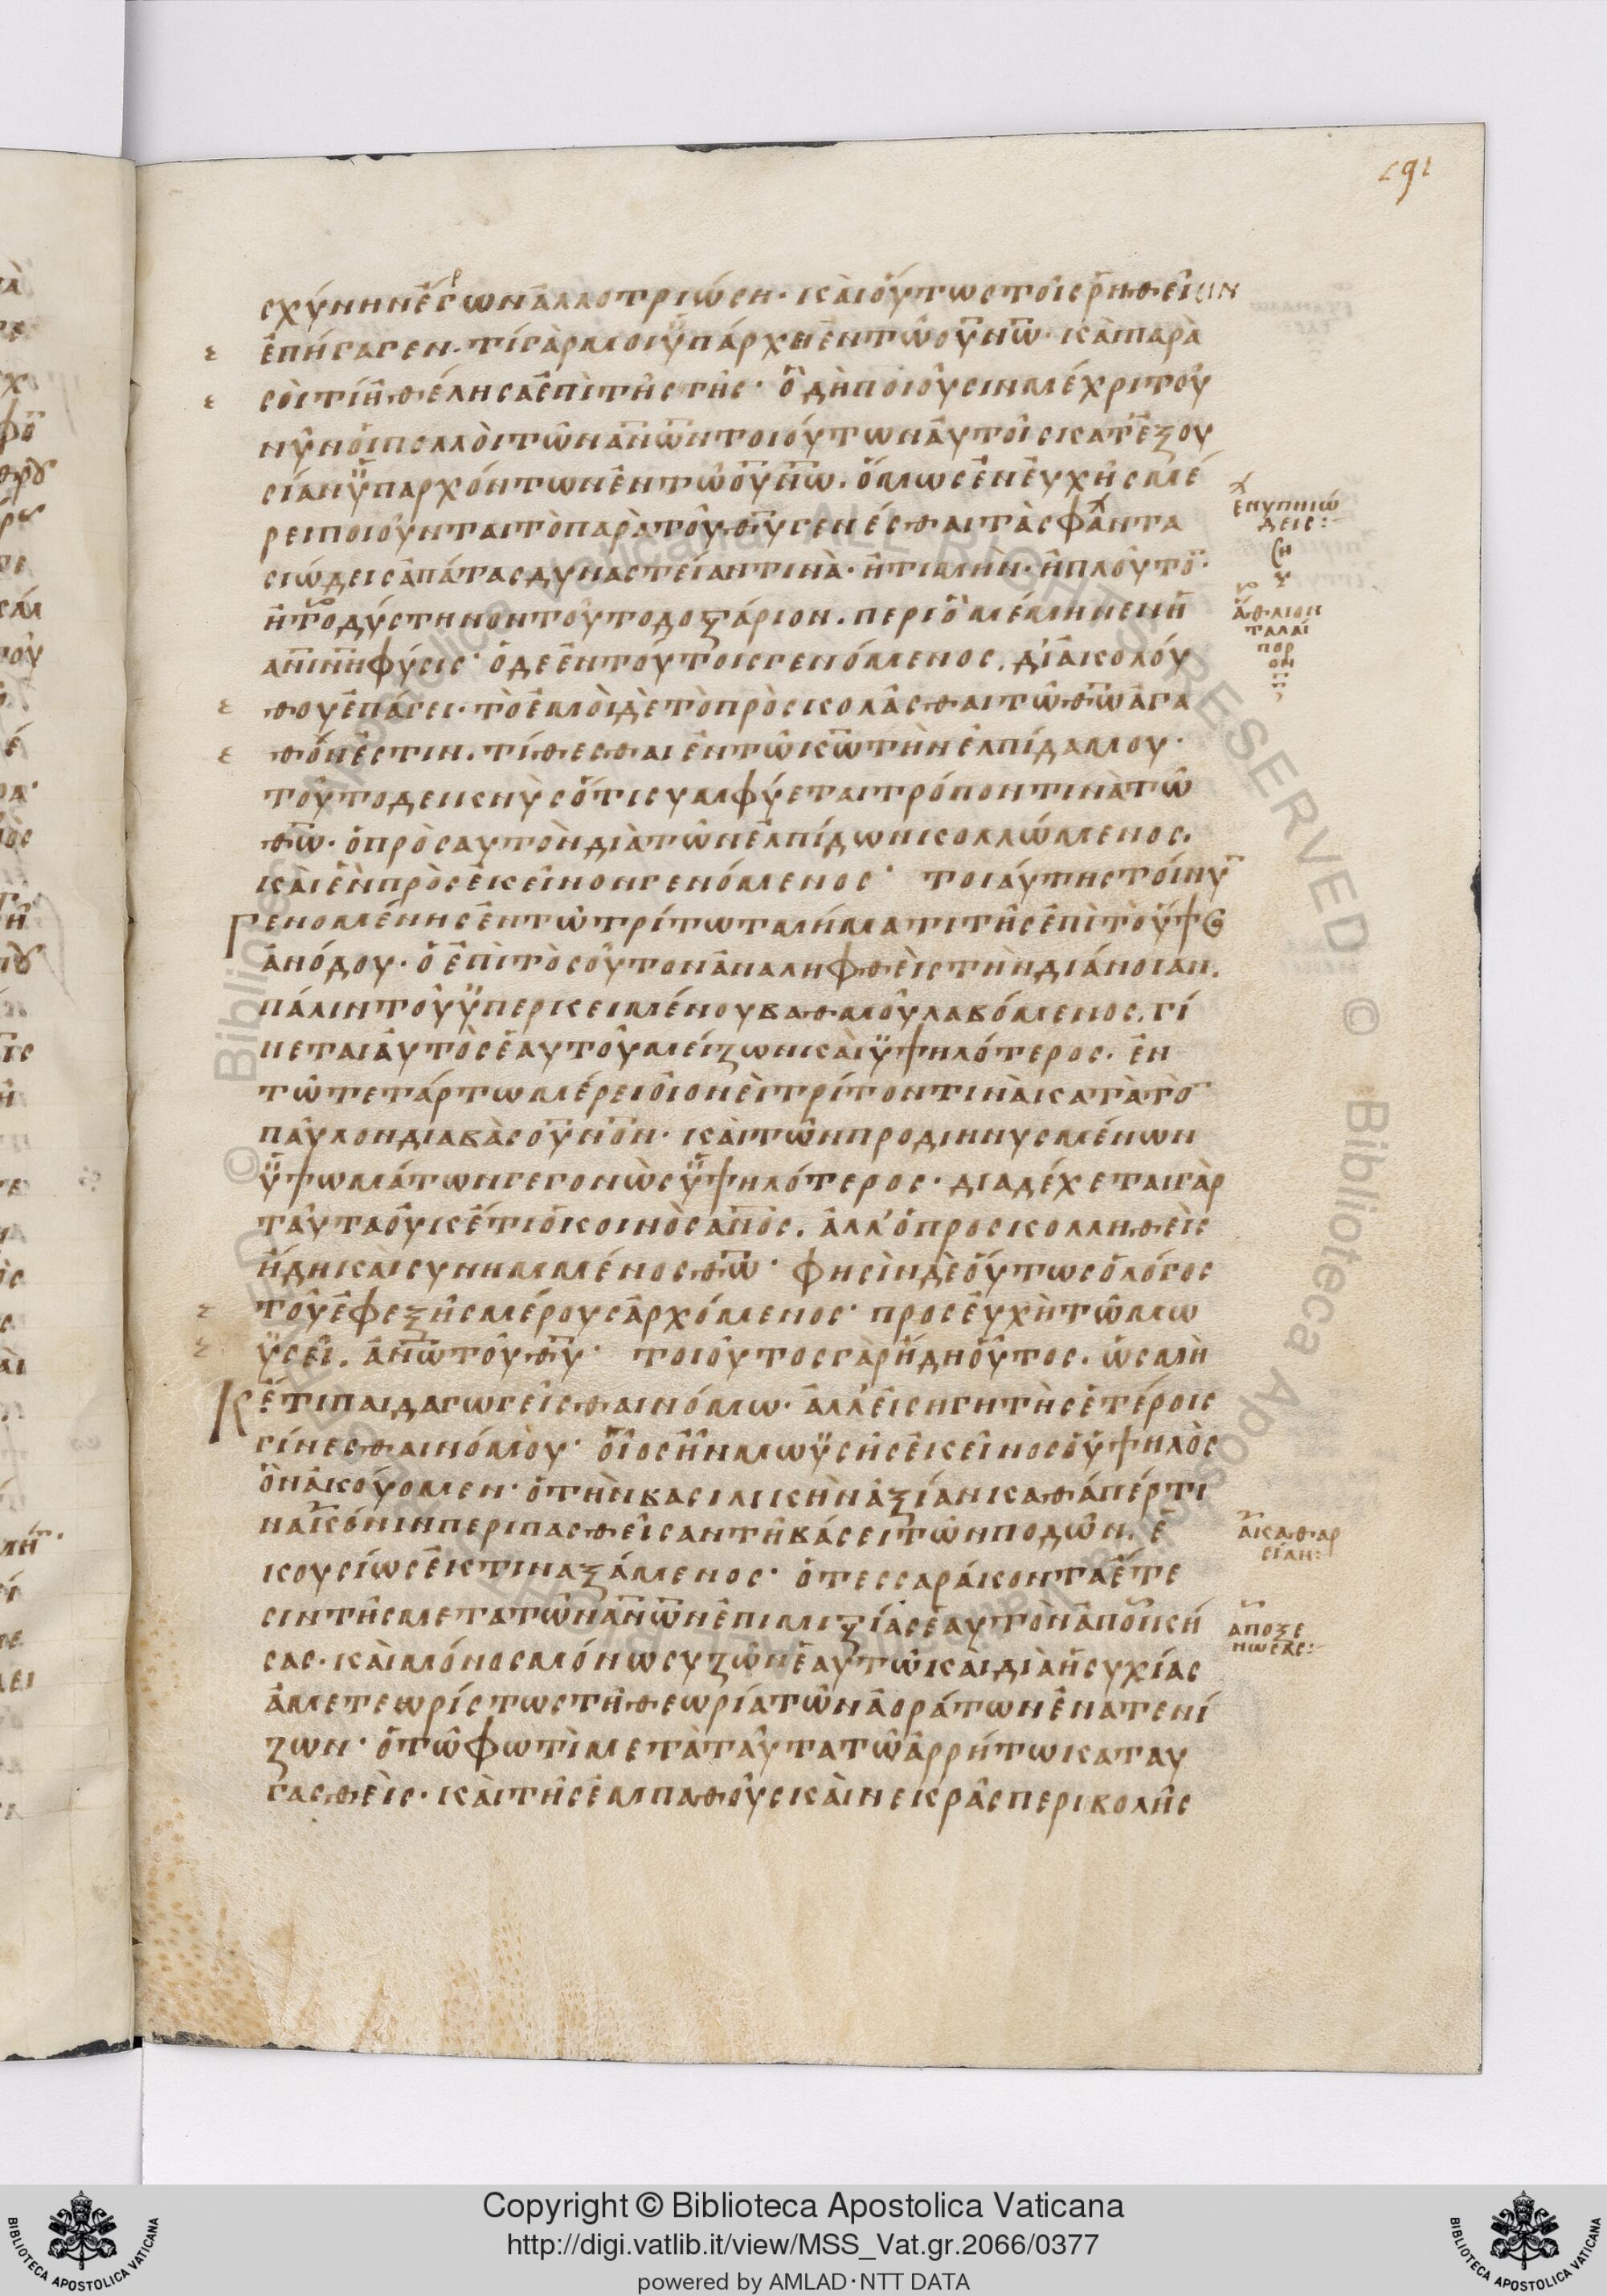 191
σχύνην ἔργων ἀλλοτριώσῃ· καὶ οὕτως τοῖς ῥηθεῖσιν
ἐπήγαγεν· τί γάρ μοι ὑπάρχει ἐν τῶ οὐνω· καὶ παρὰ
σοὶ τί ἠθέλησα ἐπὶ τῆς γῆς· ὃ δὴ ποιοῦσιν μέχρι τοῦ
νῦν οἱ πολλοὶ τῶν ανων τοιούτων αὐτοῖς κατ' ἐξου
σίαν ὑπαρχόντων ἐν τῶ οὐνω. ὅμως ἐν εὐχῆς μέ
ρει ποιοῦνται τὸ παρὰ τοῦ θυ γενέσθαι τὰς φαντα
σιώδεις ἀπάτας δυναστείαν τινὰ· ἢ τιμὴν· ἢ πλοῦτο·
ἢ τὸ δύστηνον τοῦτο δοξάριον. περὶ ὃ μέμηνεν ἡ
ανινη φύσις· ὁ δὲ ἐν τούτοις γενόμενος. δι' ἀκολού
θου ἐπάγει· τὸ ἐμοὶ δὲ τὸ προσκολᾶσθαι τῶ θω ἀγα
θόν ἐστιν. τίθεσθαι ἐν τῶ κω τὴν ἐλπίδα μου·
τοῦτο δεικνὺς ὅτι συμφύεται τρόπον τινὰ τῶ
θω· ὁ πρὸς αυτὸν διὰ τῶν ἐλπίδων κολλώμενος.
καὶ ἓν πρὸς ἐκεῖνον γενόμενος· τοιαύτης τοίνυ
γενομένης ἐν τῶ τρίτω τμήματι τῆς ἐπὶ τὸ ὕψος
ἀνόδου· ὁ ἐπὶ τοσοῦτον ἀναληφθεὶς τὴν διάνοιαν.
πάλιν τοῦ ὑπερκειμένου βαθμοῦ λαβόμενος. γί
νεται αὐτὸς ἑαυτοῦ μείζων καὶ ὑψηλότερος. ἐν
τῶ τετάρτω μέρει οἷον εἰς τρίτον τινὰ κατὰ τὸ
παῦλον διαβὰς οὐνὸν· καὶ τῶν προδιηνυσμένων
ὑψωμάτων γεγονὼς ὑψηλότερος· διαδέχεται γὰρ
ταῦτα οὐκ ἔτι ὁ κοινὸς ανὸς. ἀλλ' ὁ προσκολληθεὶς
ἤδη καὶ συνημμένος θω· φησὶν δὲ οὕτως ὁ λόγος
τοῦ ἐφεξῆς μέρους ἀρχόμενος· προσευχὴ τῶ μω
ϋσεῖ. ανω τοῦ θυ· τοιοῦτος γὰρ ἤδη οὗτος. ὡς μὴ
κέτι παιδαγωγεῖσθαι νόμω· ἀλλ' εἰσηγητὴς ἑτέροις
γίνεσθαι νόμου· οἷος ἦν μωϋσῆς ἐκεῖνος ὁ ὑψηλὸς
ὃν ἀκούομεν· ὁ τὴν βασιλικὴν ἀξίαν καθάπέρ τι
να κόνιν περιπασθεῖσαν τῆ βάσει τῶν ποδῶν. ἑ
κουσίως ἐκτιναξάμενος· ὁ τεσσαράκοντα ἔτε
σιν τῆς μετα τῶν ανων ἐπιμιξίας ἑαυτὸν ἀποικί
σας· καὶ μόνος μόνω συζῶν ἑαυτῶ καὶ διὰ ἡσυχίας
ἀμετεωρίστως τῆ θεωρία τῶν ἀοράτων ἐνατενί
ζων· ὁ τῶ φωτὶ μετὰ ταῦτα τῶ ἀρρήτω καταυ
γασθεὶς· καὶ τῆς ἐμπαθοῦς καὶ νεκρᾶς περιβολῆς
ἐνυπνιώ
δεις:
ἄθλιον
ταλαί
πορ
ον
ἀκαθαρ
σίαν:
αποξε
νωσας:
Copyright © Biblioteca Apostolica Vaticana
http://digi.vatlib.it/view/MSS_Vat.gr.2066/0377
powered by AMLAD·NTT DATA